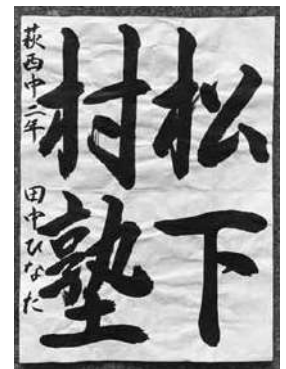 松下
村塾
萩西中二年 田中ひなた